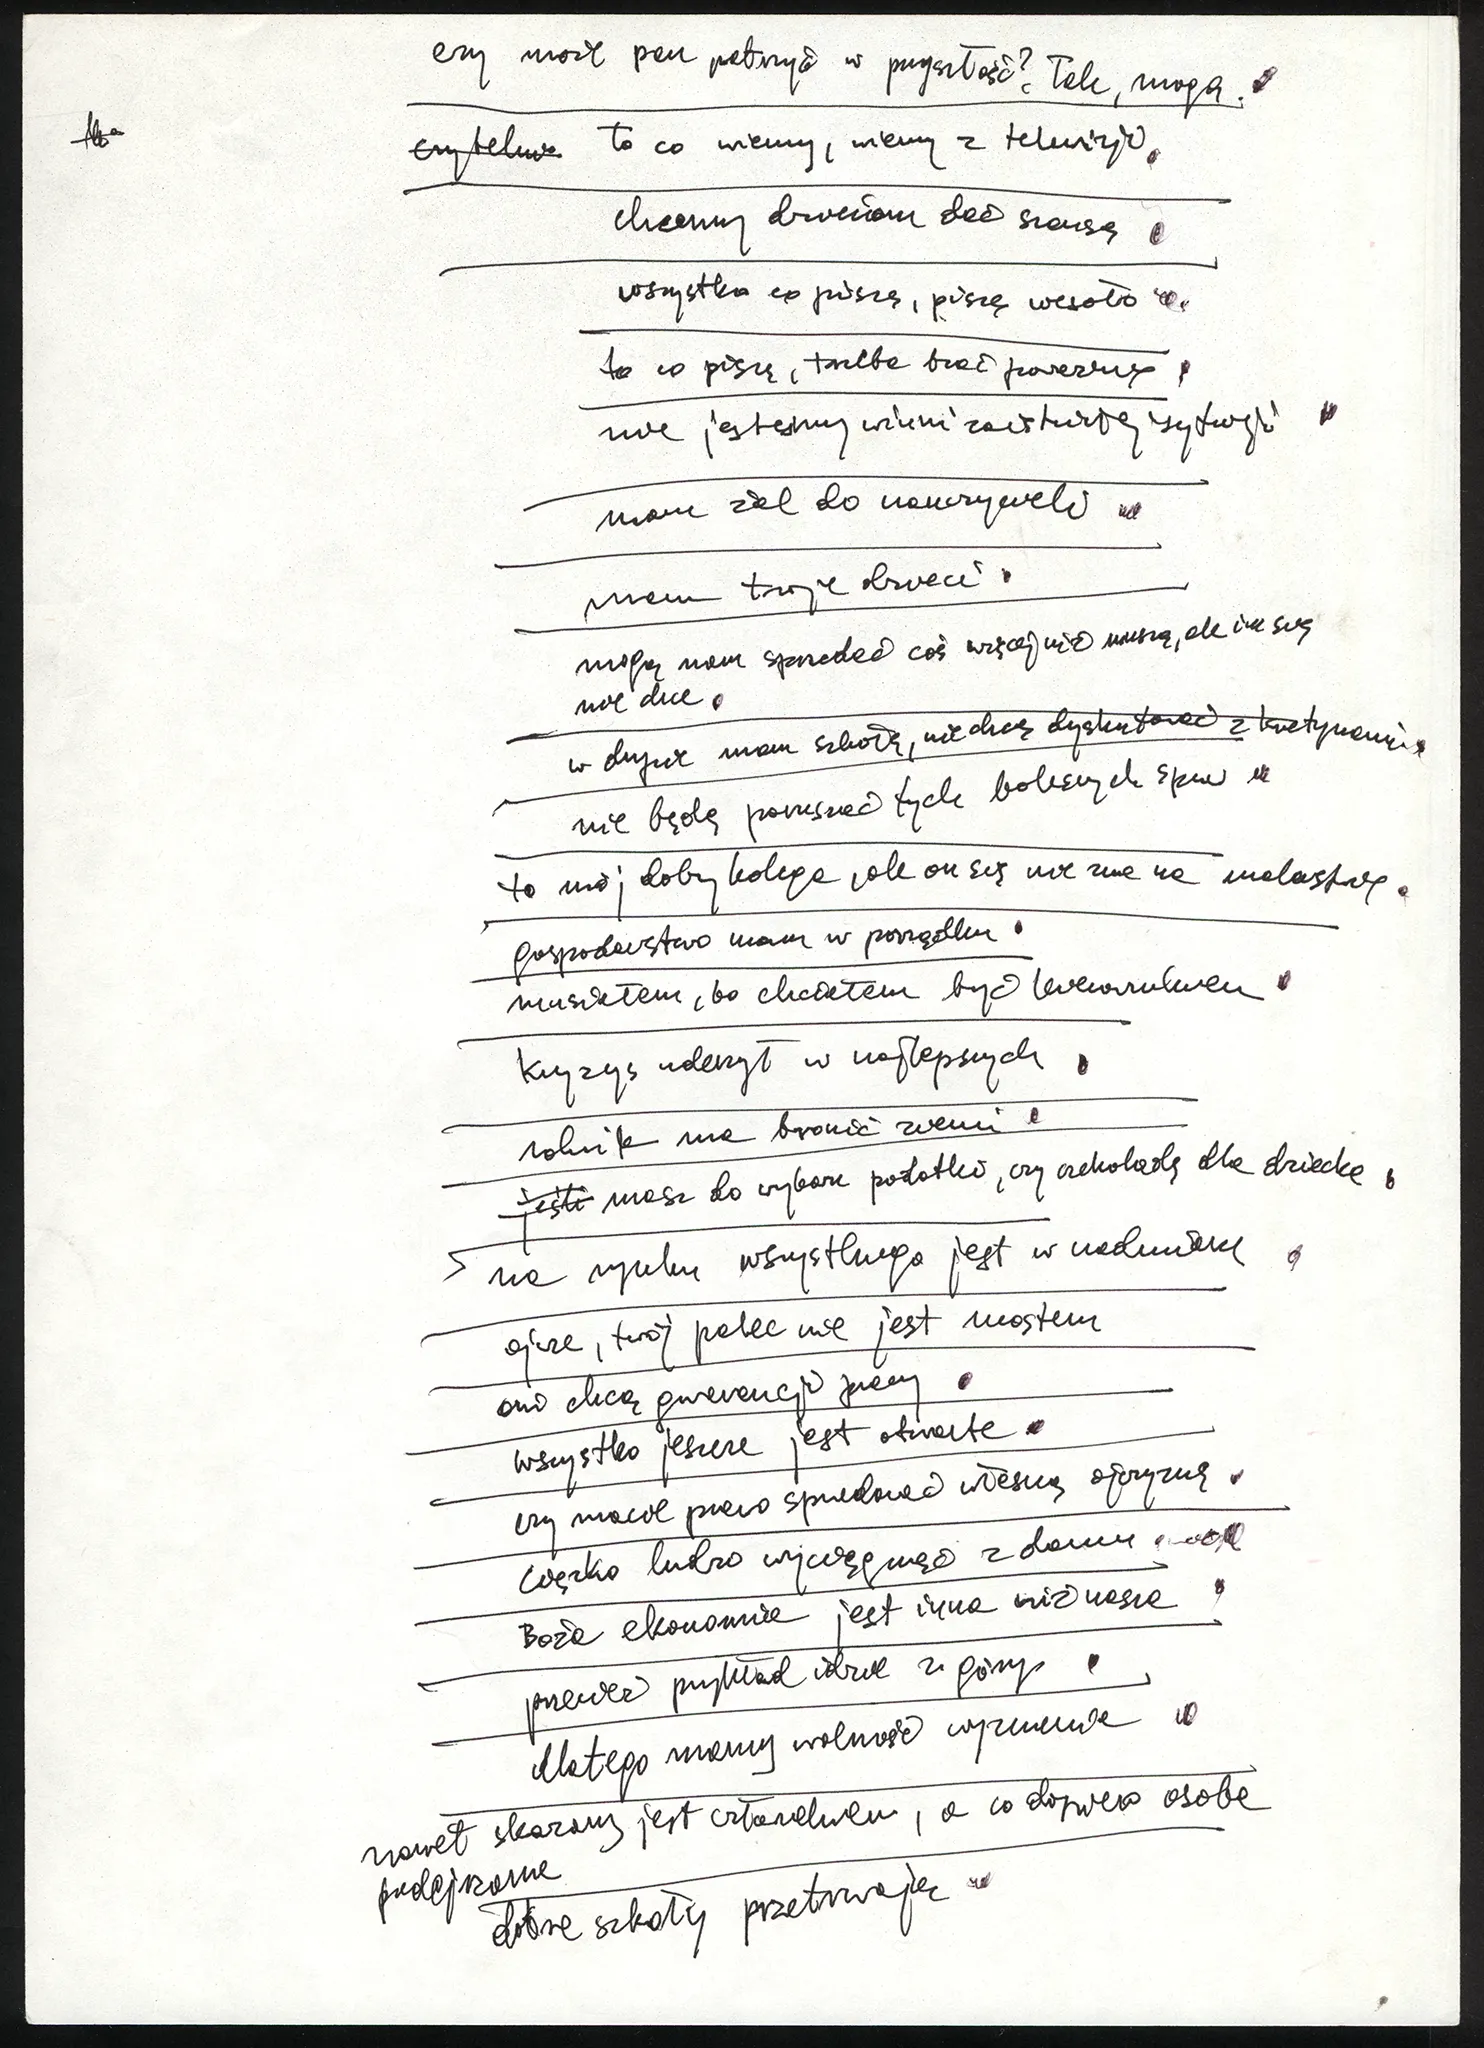 czy może pan patrzyć w przyszłość? Tak, mogę.
to co wiemy, wiemy z telewizji.
chcemy dzieciom dać szansę
wszystko co piszę, piszę wesoło
to co piszę, trzeba brać poważnie
nie jesteśmy winni zaistniałej sytuacji
mam żal do nauczycieli
mam troje dzieci.
mogą nam sprzedać coś więcej niż muszą, ale im się
nie chce.
w dupie mam szkołę, nie chcę dyskutować z kretynami.
nie będę poruszać tych bolesnych spraw
to mój dobry kolega, ale on się nie zna na malarstwie.
gospodarstwo mam w porządku.
musiałem, bo chciałem być kierownikiem
Kryzys uderzył w najlepszych
rolnik ma bronić ziemi
jeśli masz do wyboru podatki, czy czekoladę dla dziecka
na rynku wszystkiego jest w nadmiarze
ojcze, twój palec nie jest mostem
oni chcą gwarancji pracy
wszystko jeszcze jest otwarte.
czy macie prawo sprzedawać własną ojczyznę.
Ciężko ludzi wyciągnąć z domu
Boża ekonomia jest inna niż nasza
przecież przykład idzie z góry
dlatego mamy wolność wyznania
nawet skazany jest człowiekiem, a co dopiero osoba
podejrzana
dobre szkoły przetrwają